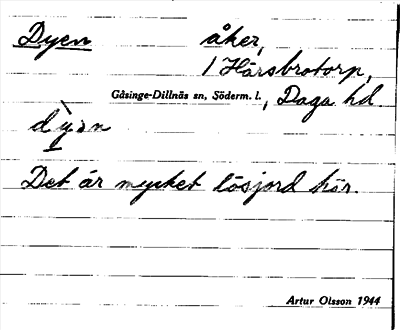 Dyen åker,
1 Hårsbrotorp,
Gåsinge-Dillnäs sn, Söderm. l., Daga hd
dỳən
Det är mycket lösjord här.
Artur Olsson 1944